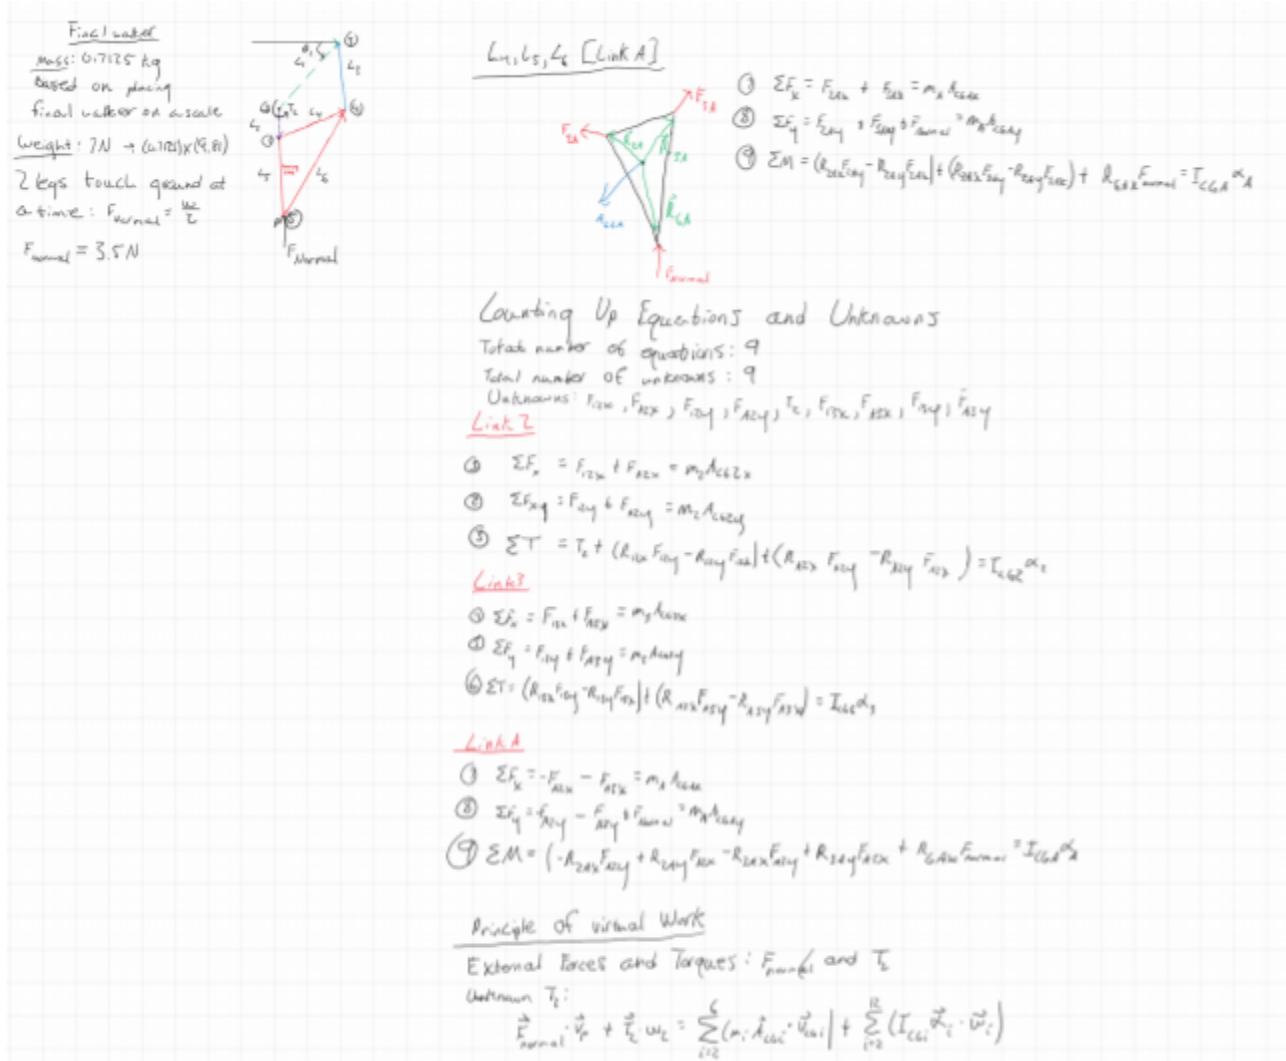 Final walker
Mass: 0.7125 kg
Based on placing
final walker on a scale
Weight: 7N → (0.7125)×(9.81)
2 legs touch ground at
a time: F_normal = w/2
F_normal = 3.5N
F_Normal
L4, L5, L6 [Link A]
F_3A
F_2A
R_2A
R_3A
A_CGA
R_6A
F_normal
⑦ ΣF_x = F_2Ax + F_3Ax = m_A A_CGAx
⑧ ΣF_y = F_2Ay + F_3Ay + F_normal = m_A A_CGAy
Counting Up Equations and Unknowns
Total number of equations: 9
Total number of unknowns: 9
Unknowns: F_12x, F_A2x, F_12y, F_A2y, T_2, F_13x, F_A3x, F_13y, F_A3y
Link 2
① ΣF_x = F_12x + F_A2x = m_2 A_CG2x
② = F_12y + F_A2y = m_2 A_CG2y
③ ΣT = T_2 + (R_12x F_12y - R_12y F_12x) + (R_A2x F_A2y - R_A2y F_A2x) = I_CG2 α_2
Link 3
④ ΣF_x = F_13x + F_A3x = m_3 A_CG3x
⑤ ΣF_y = F_13y + F_A3y = m_3 A_CG3y
⑥ ΣT = (R_13x F_13y - R_13y F_13x) + (R_A3x F_A3y - R_A3y F_A3x) = I_CG3 α_3
Link A
⑦ ΣF_x = -F_A2x - F_A3x = m_A A_CGAx
⑧ ΣF_y = -F_A2y - F_A3y + F_normal = m_A A_CGAy
⑨ ΣM = (-R_2Ax F_A2y + R_2Ay F_A2x - R_3Ax F_A3y + R_3Ay F_A3x + R_6Ax F_normal = I_CGA α_A
Principle of virtual Work
External Forces and Torques: F_normal and T_2
Unknown T_2: